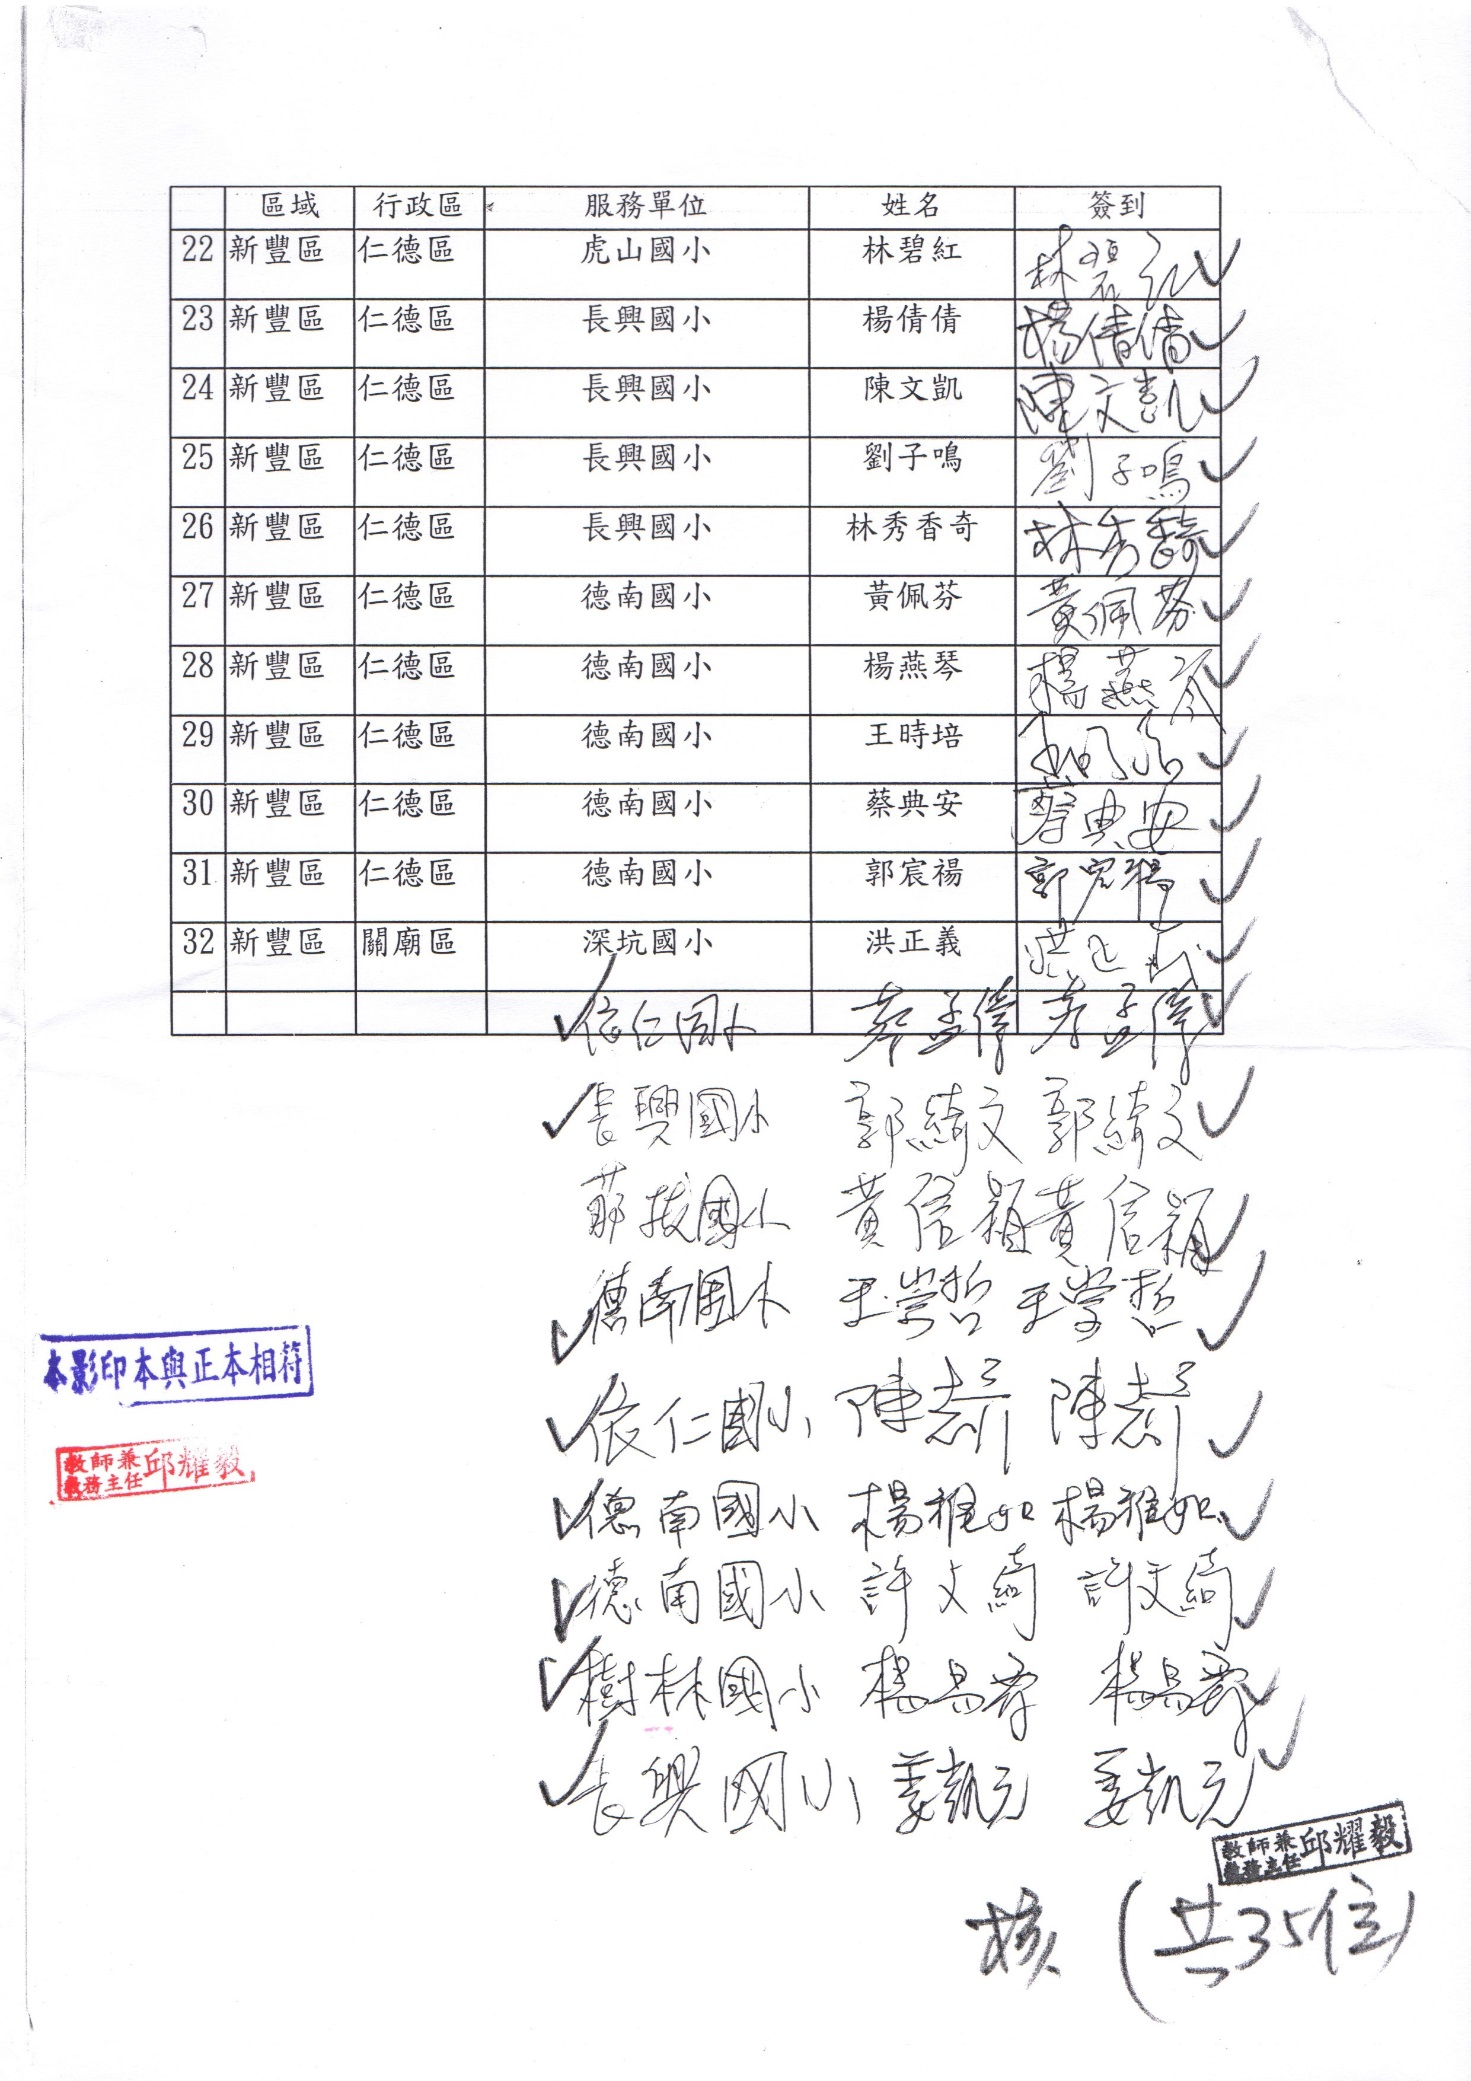 區域 行政區 服務單位 姓名 簽到
22 新豐區 仁德區 虎山國小 林碧紅 林碧紅
23 新豐區 仁德區 長興國小 楊倩倩 楊倩倩
24 新豐區 仁德區 長興國小 陳文凱 陳文凱
25 新豐區 仁德區 長興國小 劉子鳴 劉子鳴
26 新豐區 仁德區 長興國小 林秀香奇 林秀香奇
27 新豐區 仁德區 德南國小 黃佩芬 黃佩芬
28 新豐區 仁德區 德南國小 楊燕琴 楊燕琴
29 新豐區 仁德區 德南國小 王時培
30 新豐區 仁德區 德南國小 蔡典安 蔡典安
31 新豐區 仁德區 德南國小 郭宸禓 郭宸禓
32 新豐區 關廟區 深坑國小 洪正義 洪正義
依仁国小
長興國小 郭綺文 郭綺文
國小 黃信穎 黃信穎
德南国小 王崇哲 王崇哲
依仁國小
德南國小 楊雅如 楊雅如
德南國小 許文綺 許文綺
樹林國小
長興国小 姜凱元 姜凱元
本影印本與正本相符
教師兼教務主任 邱耀毅
教師兼教務主任 邱耀毅
核 (共35位)